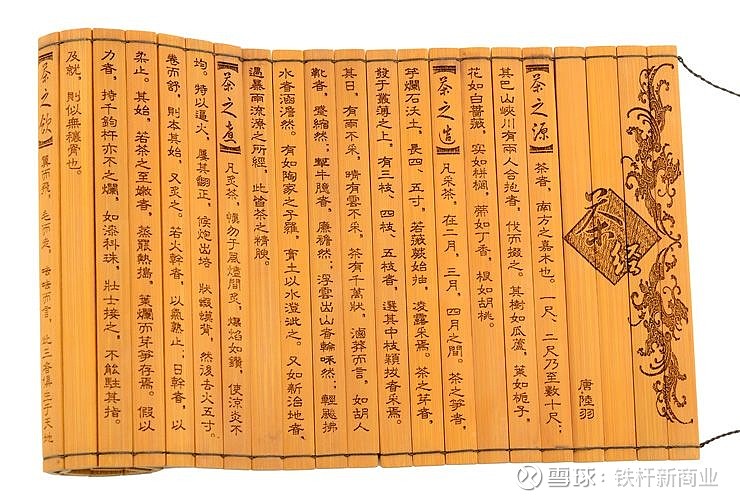 茶經
唐陸羽
【茶之源】茶者，南方之嘉木也。一尺、二尺乃至數十尺；
其巴山峽川有兩人合抱者，伐而掇之。其樹如瓜蘆，葉如栀子，
花如白薔薇，实如栟櫚，蒂如丁香，根如胡桃。
【茶之造】凡采茶，在二月，三月，四月之間。茶之笋者，
芋爛石沃土，長四、五寸，若薇蕨始抽，凌露采焉。茶之芽者，
發于叢薄之上，有三枝、四枝、五枝者，選其中枝穎拔者采焉。
其日，有雨不采，晴有雲不采，茶有千萬狀，鹵莽而言，如胡人
靴者，蹙縮然；犎牛臆者，廉襜然；浮雲出山者輪囷然；輕飈拂
水者涵澹然。有如陶家之子羅，膏土以水澄泚之。又如新治地者，
遇暴雨流潦之所經，此皆茶之精腴。
【茶之煮】凡炙茶，慎勿于風燼間炙，熛焰如鑽，使涼炎不
均。特以逼火，屢其翻正，候炮出培 狀蝦蟆背，然後去火五寸。
卷而舒，則本其始，又炙之。若火幹者，以氣熟止；日幹者，以
柔止。其始，若茶之至嫩者，蒸罷熱搗，葉爛而芽笋存焉。假以
力者，持千鈞杵亦不之爛，如漆科珠，壯士接之，不能駐其指。
及就，則似無穰骨也。
【茶之飲】翼而飛，毛而走，呿而言，此三者俱生于天地
雪球：铁杆新商业